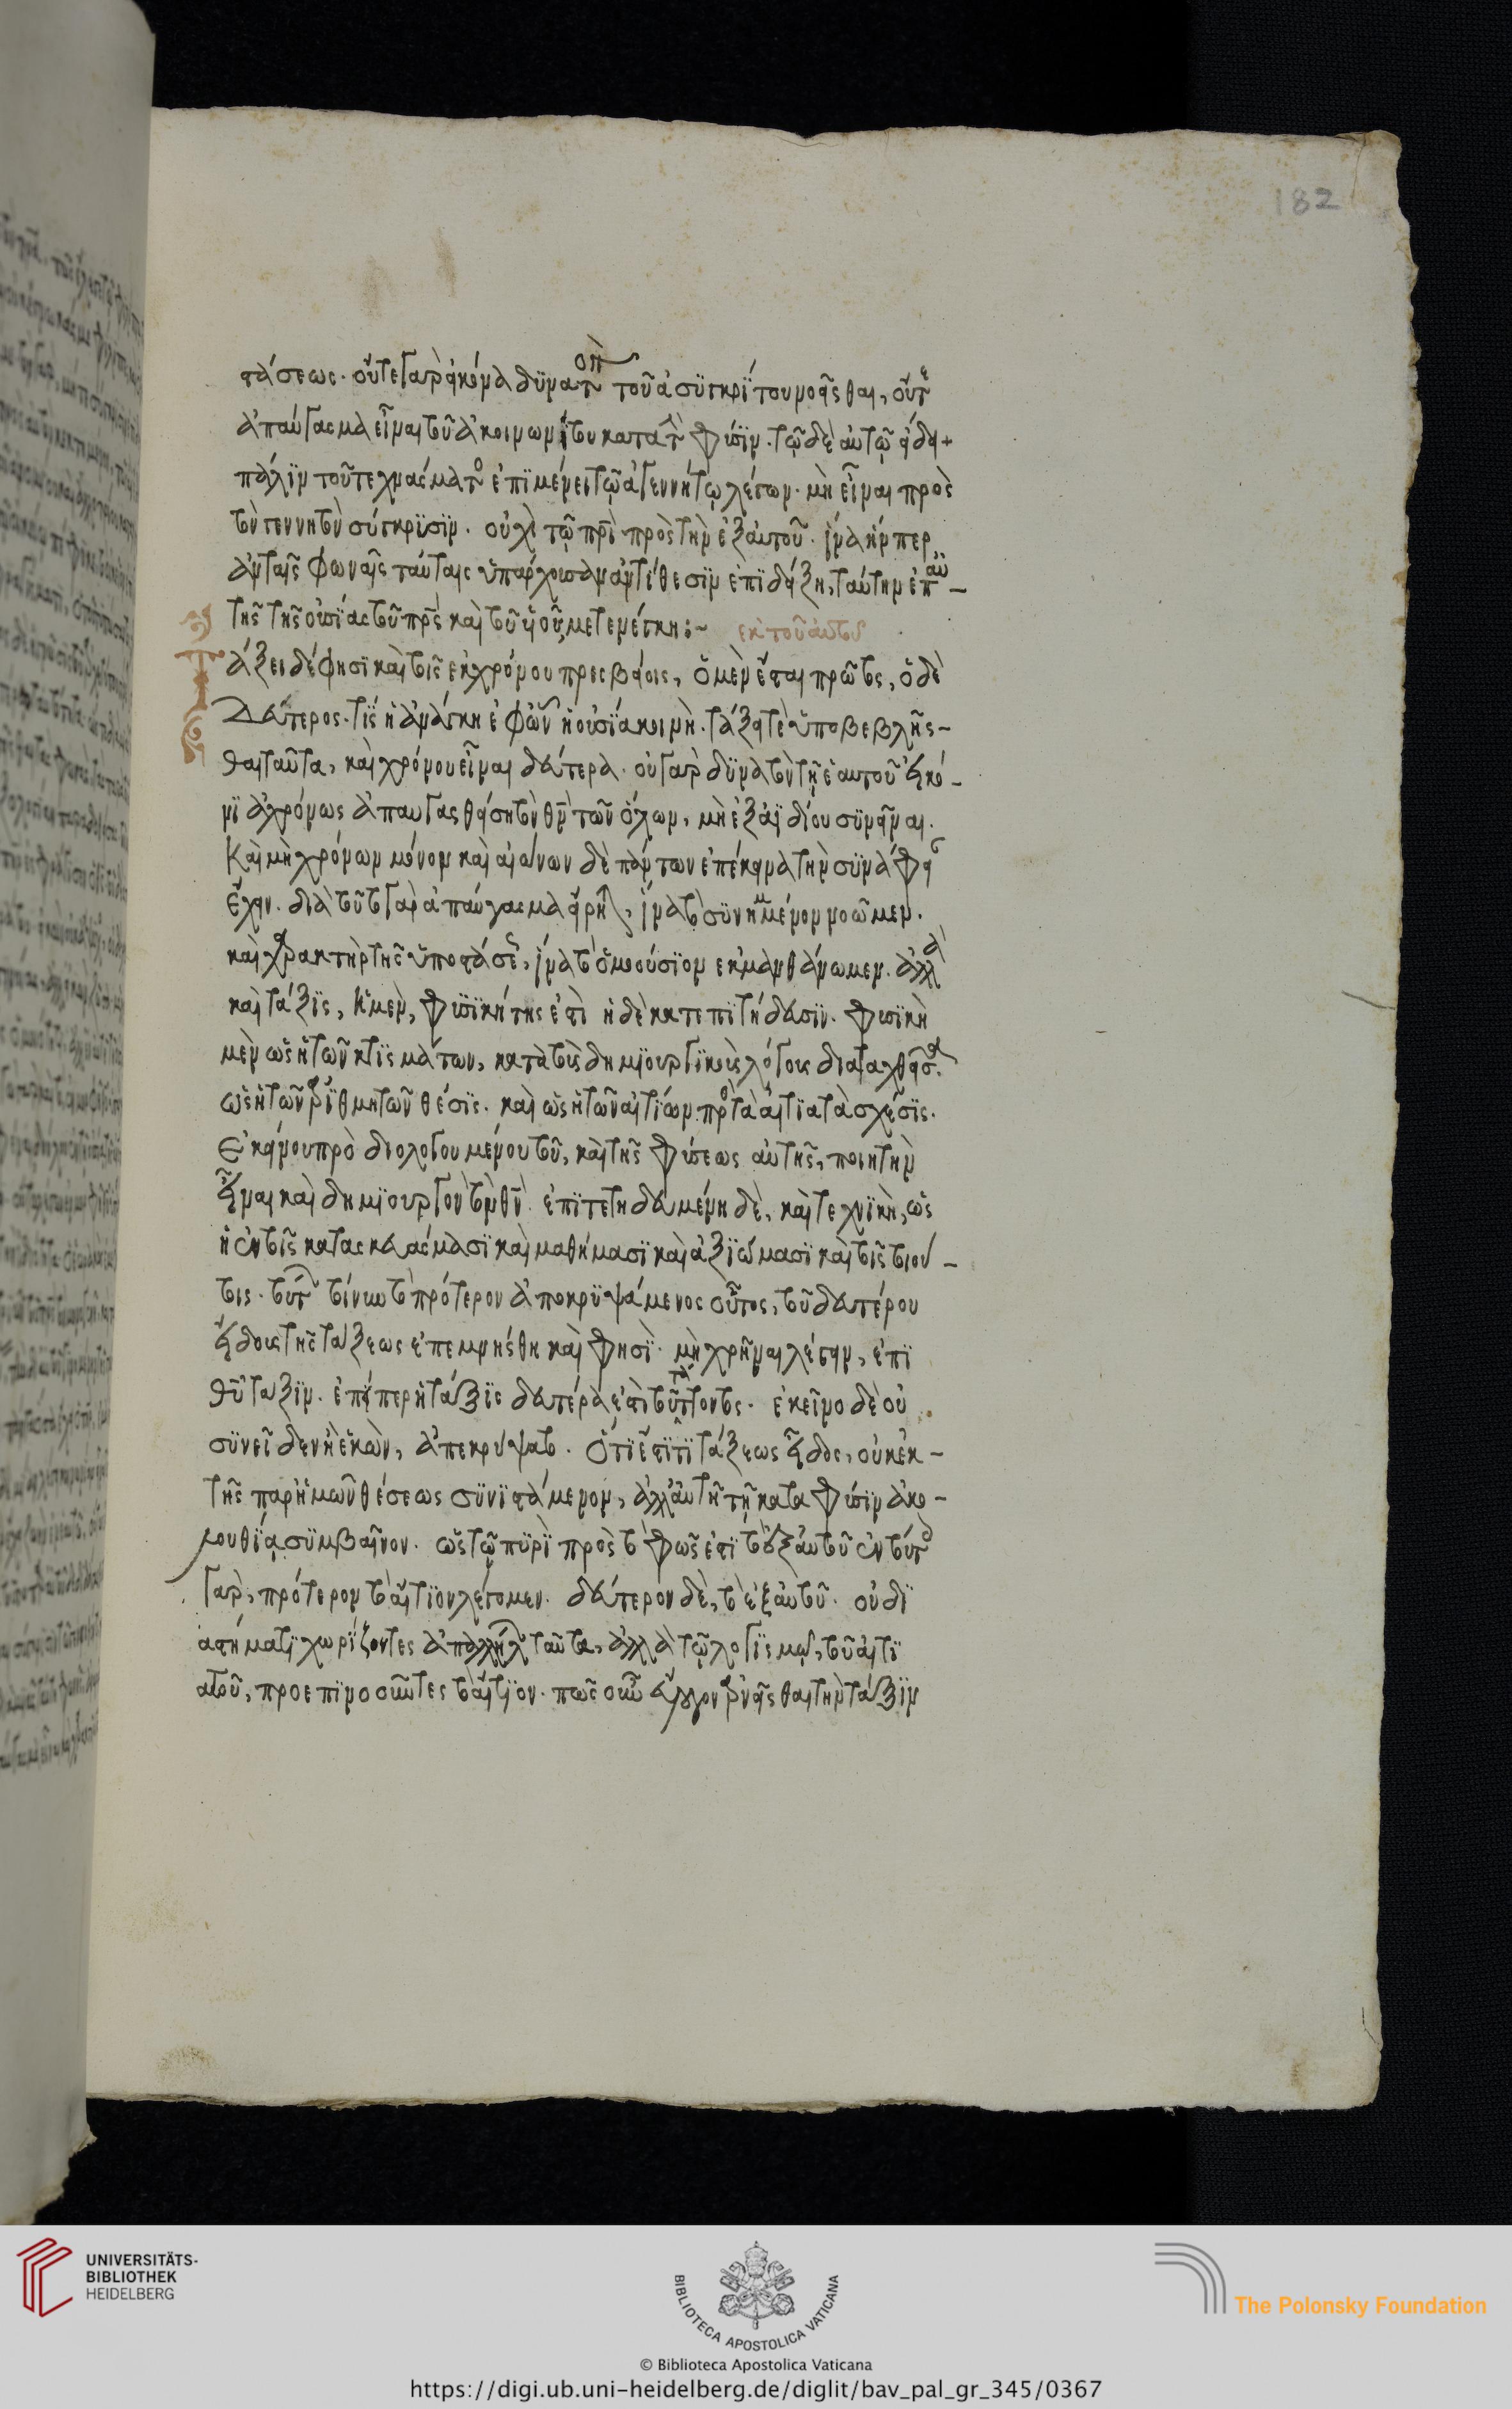 182
στάσεως. οὔτε γὰρ εἰκόνα δύνατὸν τοῦ ἀσυγκρίτου νοεῖσθαι, οὔτε
ἀπαύγασμα εἶναι τοῦ ἀκοινωνήτου κατὰ τὴν φύσιν. τῷ δὲ αὐτῷ εἴδει
πάλιν τοῦ τεχνάσματος ἐπιμένει τῷ ἀγεννήτῳ λέγων. μὴ εἶναι πρὸς
τὸν γεννητὸν σύγκρισιν. οὐχὶ τῷ πρὶ πρὸς τὴν ἐξ αὐτοῦ. ἵνα ἥνπερ
ἂν ταῖς φωναῖς ταύταις ὑπάρχουσαν ἀντίθεσιν ἐπιδείξῃ, ταύτην ἐπ αὐ-
τῆς τῆς οὐσίας τοῦ πρς καὶ τοῦ υἱοῦ μετενέγκῃ:~ ἐκ τοῦ αὐτοῦ
Τάξει δέ φησι καὶ τοῖς ἐκ χρόνου πρεσβείοις, ὁ μὲν ἔσται πρῶτος, ὁ δὲ
δεύτερος. τίς ἡ ἀνάγκη ἐφ ὧν ἡ οὐσία κοινὴ. τάξει τὲ ὑποβεβλῆσ-
θαι ταῦτα, καὶ χρόνου εἶναι δεύτερα. οὐ γὰρ δυνατὸν τῇ ἑαυτοῦ εἰκό-
νι ἀχρόνως ἀπαυγασθείσῃ τὸν θν τῶν ὅλων, μὴ ἐξ ἀϊδίου συνεῖναι.
Καὶ μὴ χρόνων μόνον καὶ αἰώνων δὲ πάντων ἐπέκεινα τὴν συνάφειαν
ἔχειν. διὰ τοῦτο γὰρ ἀπαύγασμα εἴρηται, ἵνα τὸ συνημμένον νοῶμεν.
καὶ χαρακτὴρ τῆς ὑποστάσεως, ἵνα τὸ ὁμοούσιον ἐκμανθάνωμεν. ἀλλὰ
καὶ τάξις, ἡ μὲν, φυσική τις ἐστὶ ἡ δὲ κατ επιτήδευσιν. φυσικὴ
μὲν ὡς ἡ τῶν κτισμάτων, κατὰ τοὺς δημιουργικοὺς λόγους διαταχθεῖσα.
ὡς ἡ τῶν ἀριθμητῶν θέσις. καὶ ὡς ἡ τῶν αἰτίων πρὸς τὰ αἰτιατὰ σχέσις.
Ἐκείνου προδιολογουμένου τοῦ, καὶ τῆς φύσεως αὐτῆς, ποιητὴν
εἶναι καὶ δημιουργὸν τὸν θν. ἐπιτετηδευμένη δὲ, καὶ τεχνικὴ, ὡς
ἡ ἐν τοῖς κατασκευάσμασι καὶ μαθήμασι καὶ ἀξιώμασι καὶ τοῖς τοιού-
τοις. τούτων τοίνυν τὸ πρότερον ἀποκρυψάμενος οὗτος, τοῦ δευτέρου
εἴδους τῆς τάξεως ἐπεμνήσθη καὶ φησὶ. μὴ χρῆναι λέγειν, ἐπὶ
θυ τάξιν. ἐπείπερ ἡ τάξις δευτέρα ἐστὶ τοῦ τάττοντος. ἐκεῖνο δὲ οὐ
συνεῖδεν ἢ ἑκὼν, ἀπεκρύψατο. ὅτι ἐστί τι τάξεως εἶδος, οὐκ ἐκ-
τῆς παρ ἡμῶν θέσεως συνιστάμενον, ἀλλ αὐτῇ τῇ κατα φύσιν ἀκο-
λουθίᾳ συμβαῖνον. ὡς τῷ πυρὶ πρὸς τὸ φῶς ἐστι τὸ ἐξ αὐτοῦ ἐν τούτοις
γὰρ, πρότερον τὸ αἴτιον λέγομεν. δεύτερον δὲ, τὸ ἐξ αὐτοῦ. οὐ δι
αστήματι χωρίζοντες ἀπ ἀλλήλων ταῦτα, ἀλλὰ τῷ λογισμῷ, τοῦ αἰτι
ατοῦ, προεπινοοῦντες τὸ αἴτιον. πῶς οὖν εὔλογον ἀρνεῖσθαι τὴν τάξιν
UNIVERSITÄTS-
BIBLIOTHEK
HEIDELBERG
BIBLIOTECA APOSTOLICA VATICANA
The Polonsky Foundation
© Biblioteca Apostolica Vaticana
https://digi.ub.uni-heidelberg.de/diglit/bav_pal_gr_345/0367